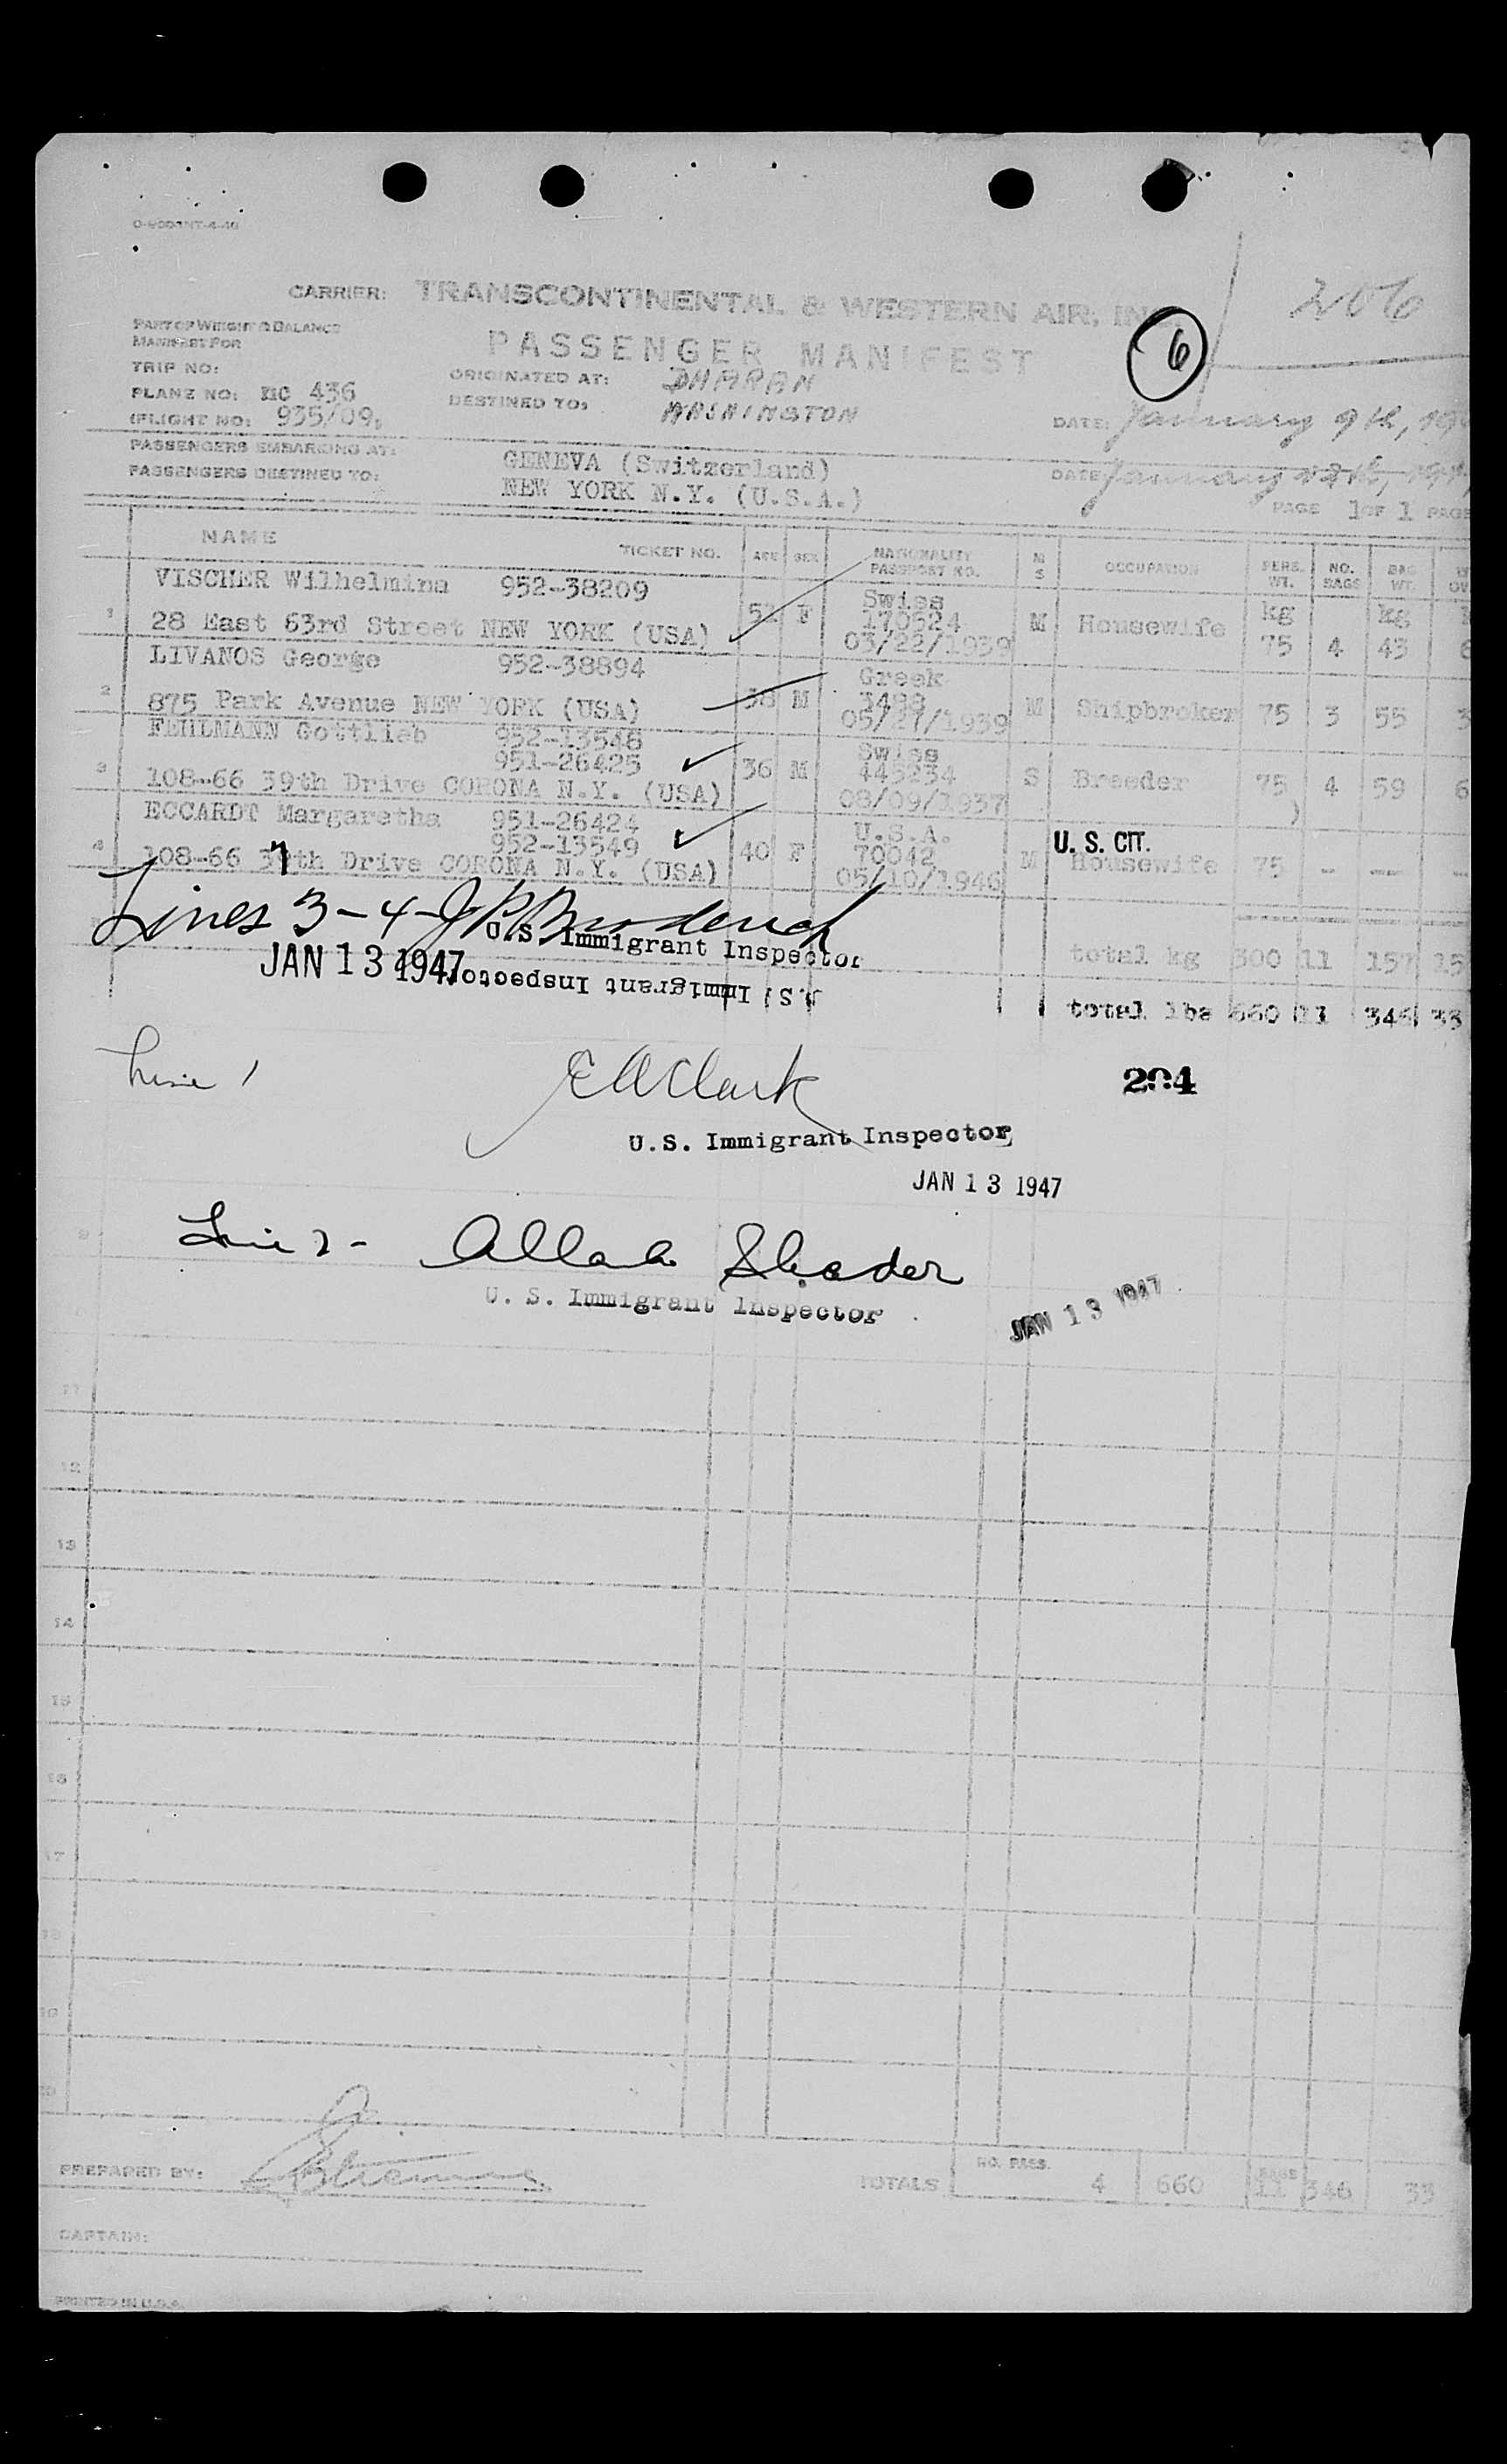 CARRIER: TRANSCONTINENTAL & WESTERN AIR, INC.
206
PART OF WEIGHT & BALANCE
MANIFEST FOR
PASSENGER MANIFEST
6
TRIP NO:
ORIGINATED AT: DHARAN
PLANE NO: NC 436
DESTINED TO: WASHINGTON
(FLIGHT NO: 935/09,
DATE: January 9th, 194
PASSENGERS EMBARKING AT: GENEVA (Switzerland)
DATE January
PASSENGERS DESTINED TO: NEW YORK N.Y. (U.S.A.)
PAGE 1 OF 1 PAGE
NAME TICKET NO. AGE SEX NATIONALITY PASSPORT NO. M S OCCUPATION PERS. WT. NO. BAGS BAG WT.
VISCHER Wilhelmina 952-38209 Swiss kg kg
1 28 East 63rd Street NEW YORK (USA) 52 F 170524 M Housewife 75 4 43 6
03/22/1939
LIVANOS George 952-38894 Greek
2 875 Park Avenue NEW YORK (USA) 38 M 3488 M Shipbroker 75 3 55 3
05/27/1939
FEHLMANN Gottlieb 952-13548 Swiss
951-26425
3 108-66 39th Drive CORONA N.Y. (USA) 36 M 445234 S Breeder 75 4 59 6
08/09/1937
ECCARDT Margaretha 951-26424 U.S.A.
952-13549 U. S. CIT.
4 108-66 39th Drive CORONA N.Y. (USA) 40 F 70042 M Housewife 75 - -- --
05/10/1946
Lines 3-4-
U.S. Immigrant Inspector
total kg 300 11 157 15
JAN 13 1947
U.S. Immigrant Inspector
total lbs 660 11 346 33
Line 1 E A Clark
204
U.S. Immigrant Inspector
JAN 13 1947
Line 2-
U. S. Immigrant Inspector
JAN 13 1947
11
12
13
14
15
16
17
PREPARED BY:
TOTALS NO. PASS. 4 660 BAGS 11 346 33
CAPTAIN:
PRINTED IN U.S.A.